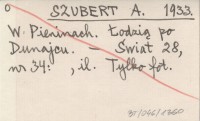 O SZUBERT A. 1933.
W Pieninach. Łodzią po
Dunajcu. – Świat 28,
nr 34: , il. Tylko fot.